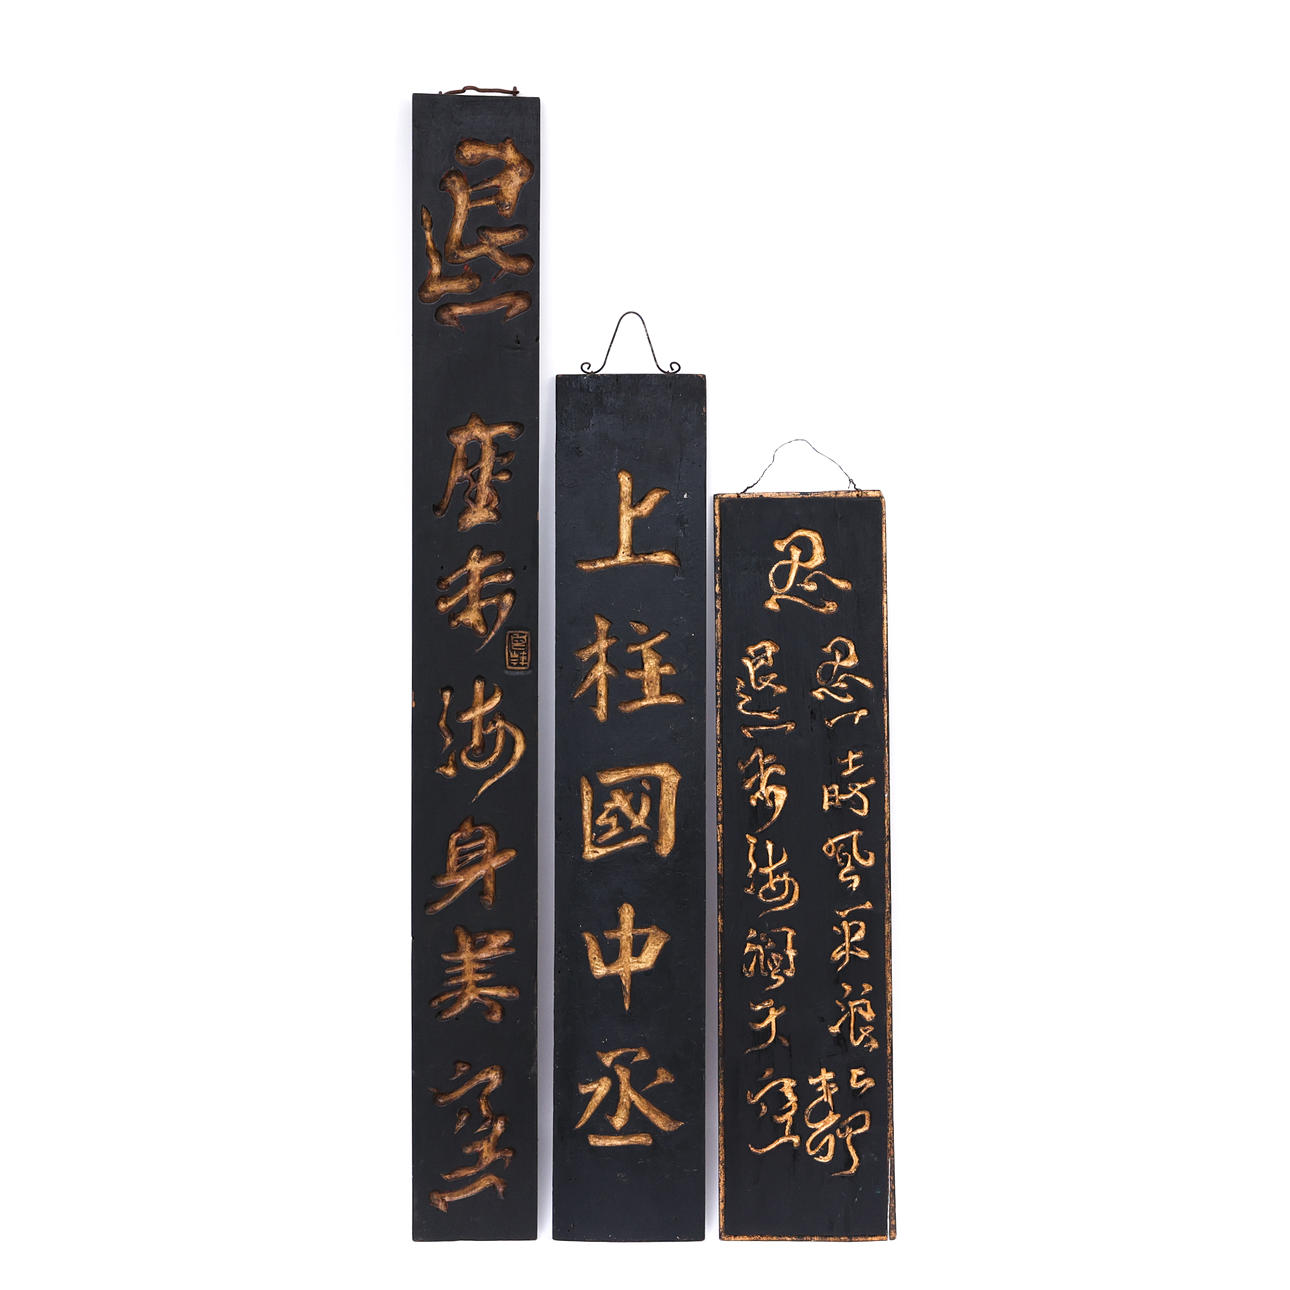 忍
忍一時風平浪靜
退一步海闊天空
上柱國中丞
退一座步海身美空